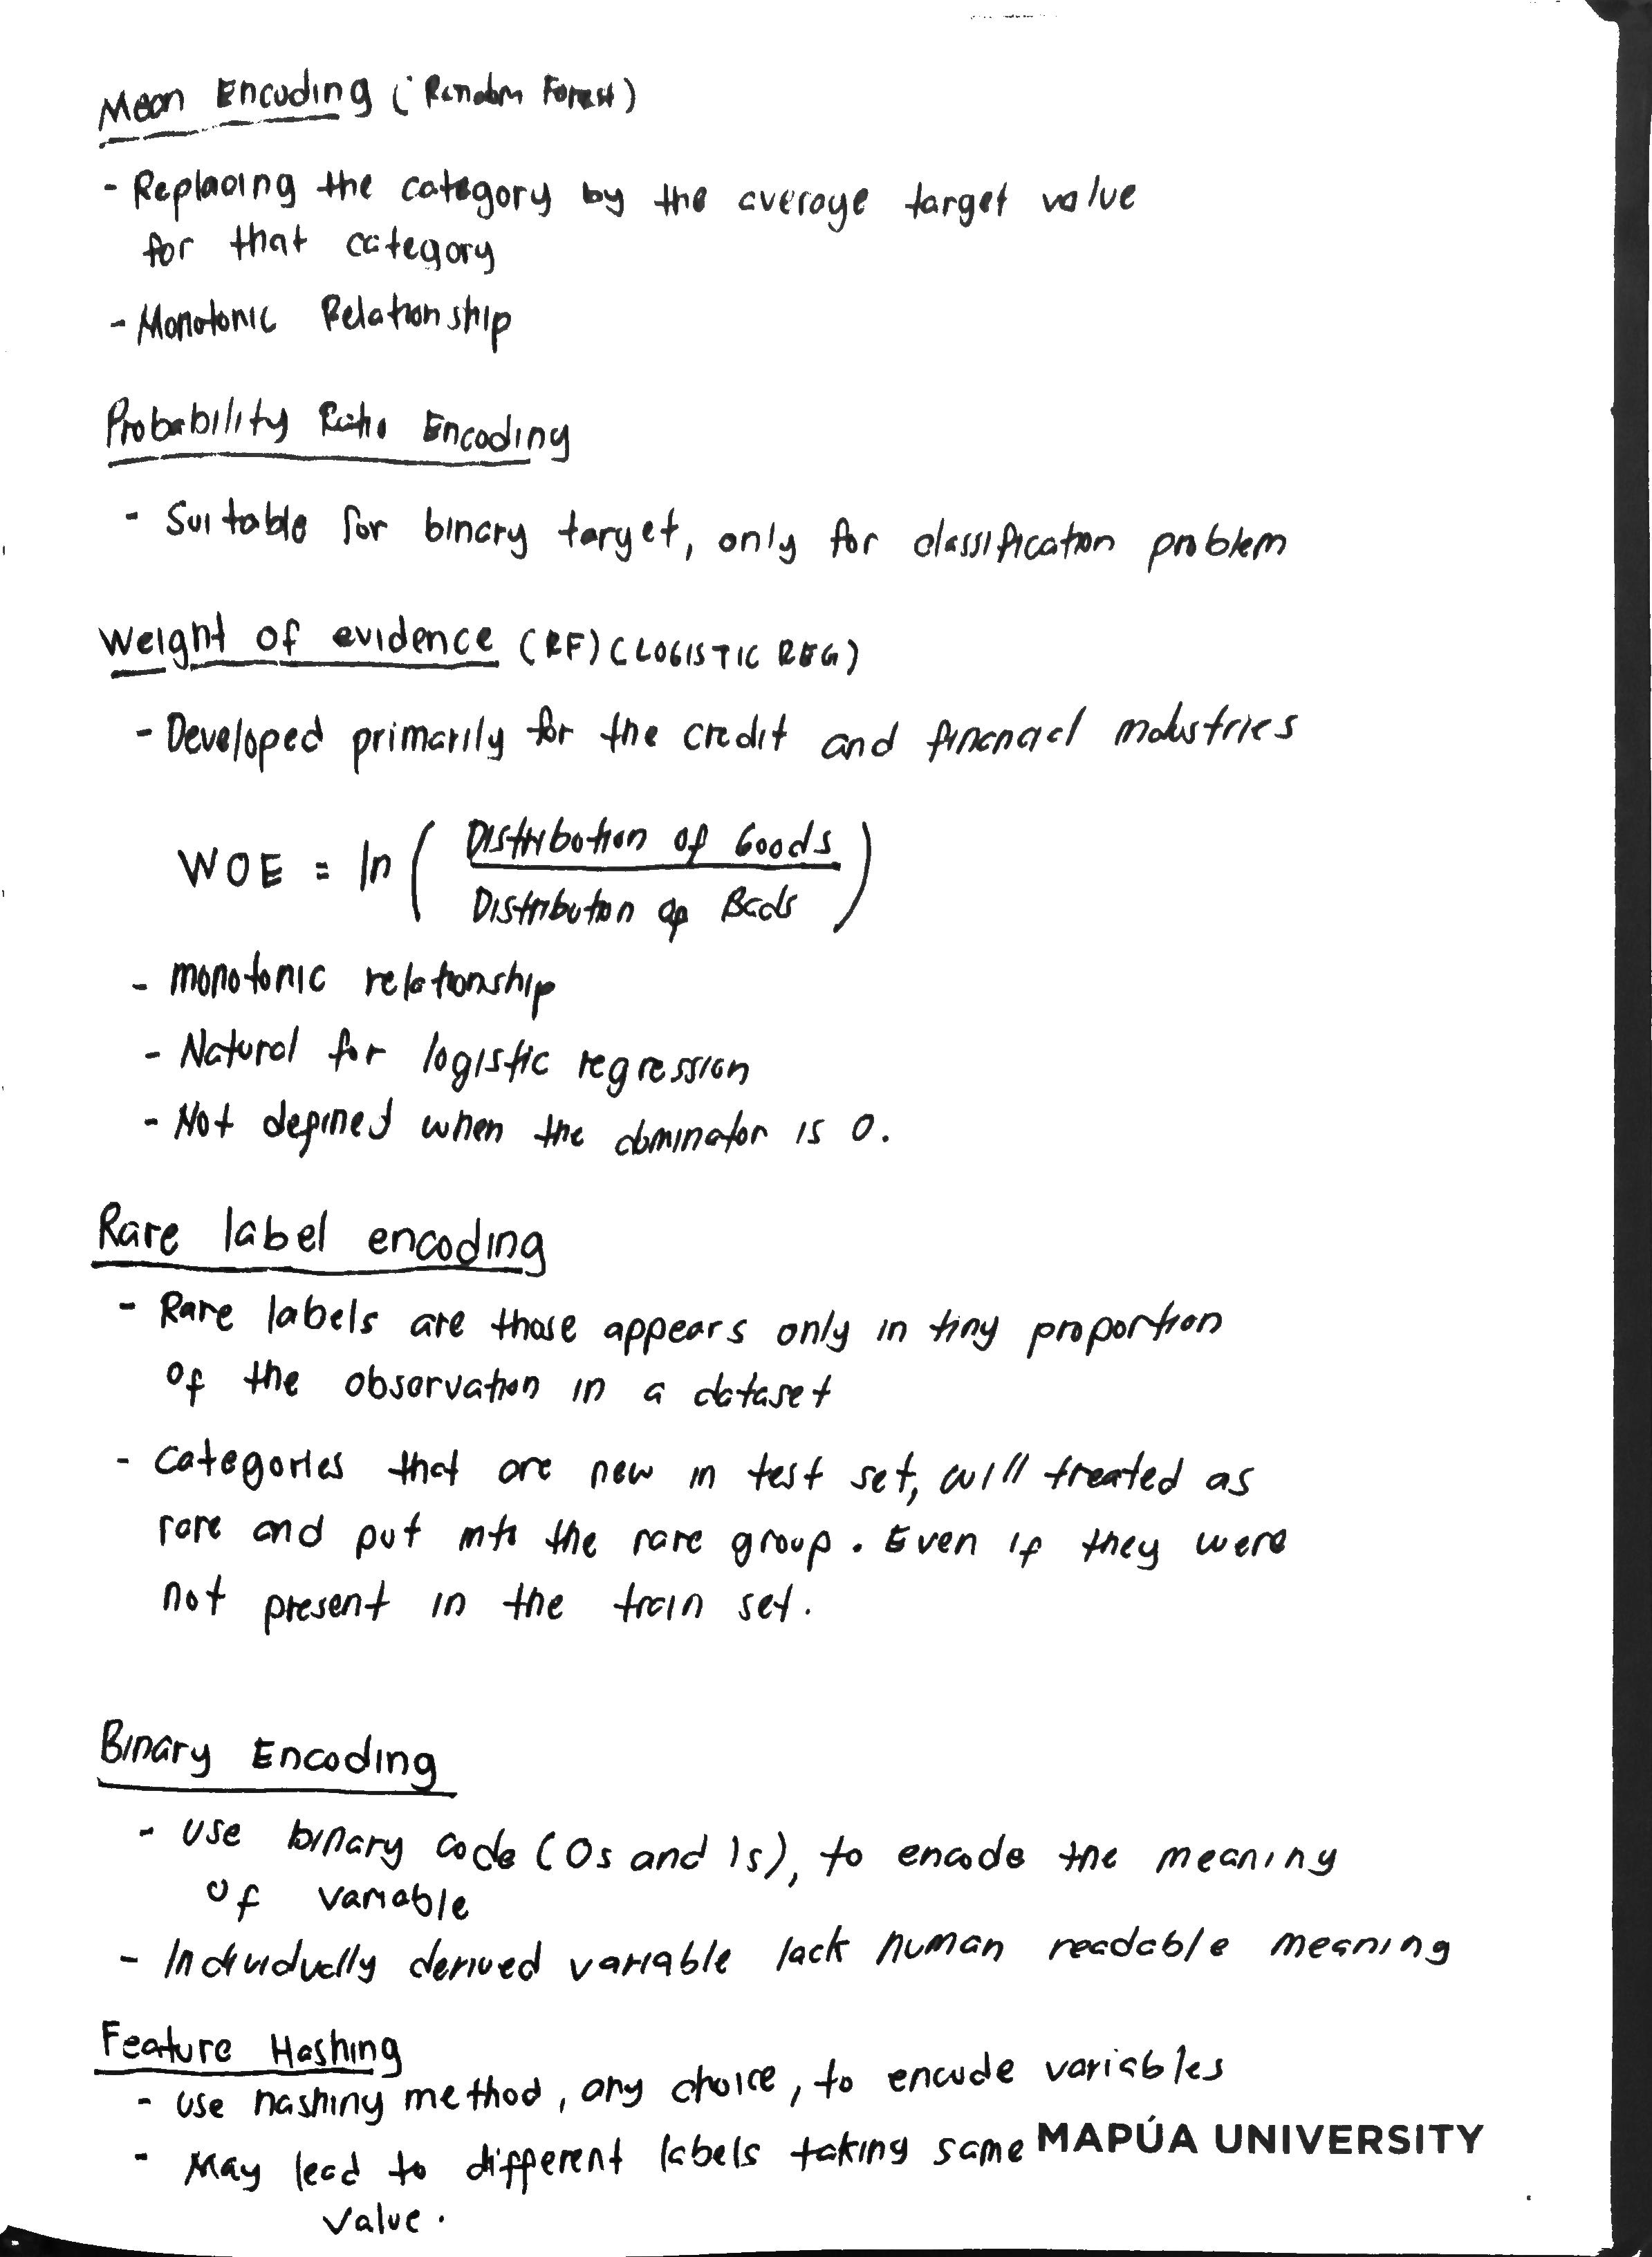 Mean Encoding (Random Forest)
- Replacing the category by the average target value
for that category
- Monotonic Relationship
Probability Ratio Encoding
- Suitable for binary target, only for classification problem
Weight of evidence (RF) (LOGISTIC REG)
- Developed primarily for the credit and financial industries
WOE = ln ( Distribution of Goods
Distribution of Bads )
- monotonic relationship
- Natural for logistic regression
- Not defined when the dominator is 0.
Rare label encoding
- Rare labels are those appears only in tiny proportion
of the observation in a dataset
- Categories that are new in test set, will treated as
rare and put into the rare group. Even if they were
not present in the train set.
Binary Encoding
- Use binary code (0s and 1s), to encode the meaning
of variable
- Individually derived variable lack human readable meaning
Feature Hashing
- Use hashing method, any choice, to encode variables
- May lead to different labels taking same
value.
MAPÚA UNIVERSITY